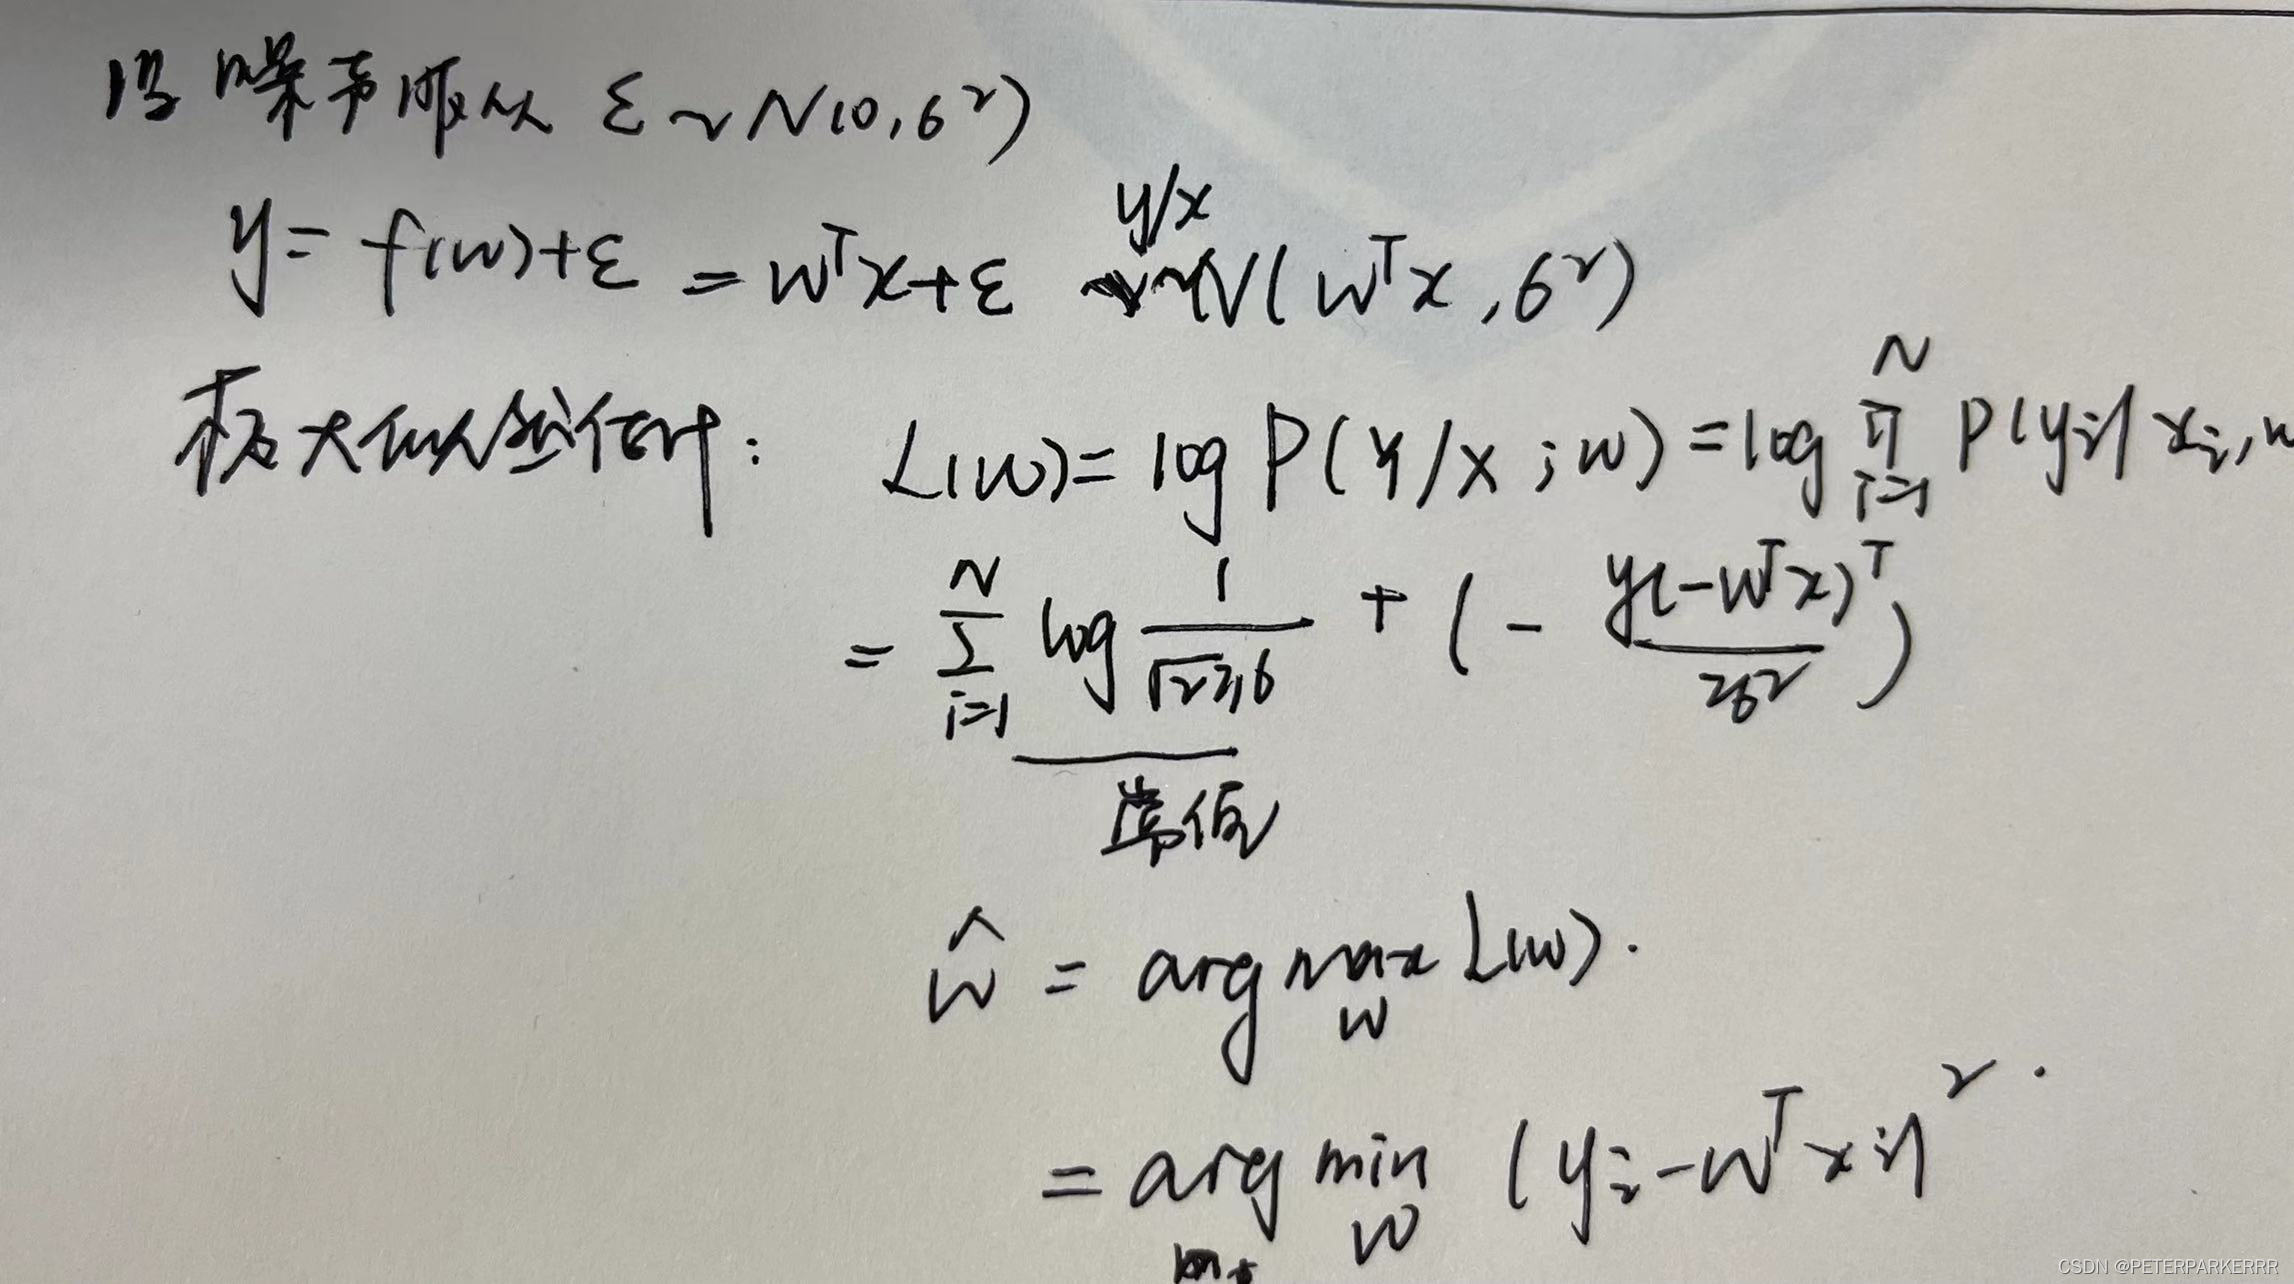 设噪声服从 ε ~ N(0, σ²)
y = f(w)+ε = wᵀx+ε y/x ~ N(wᵀx, σ²)
极大似然估计: L(w) = log P(Y/X ; w) = log ∏ᵢ₌₁ᴺ P(yᵢ| xᵢ, w
= Σᵢ₌₁ᴺ log 1/(√2π σ) + (- y(-wᵀx)ᵀ / 2σ²)
常值
ŵ = arg max_w L(w).
= arg min_w (yᵢ - wᵀxᵢ)².
CSDN @PETERPARKERRR